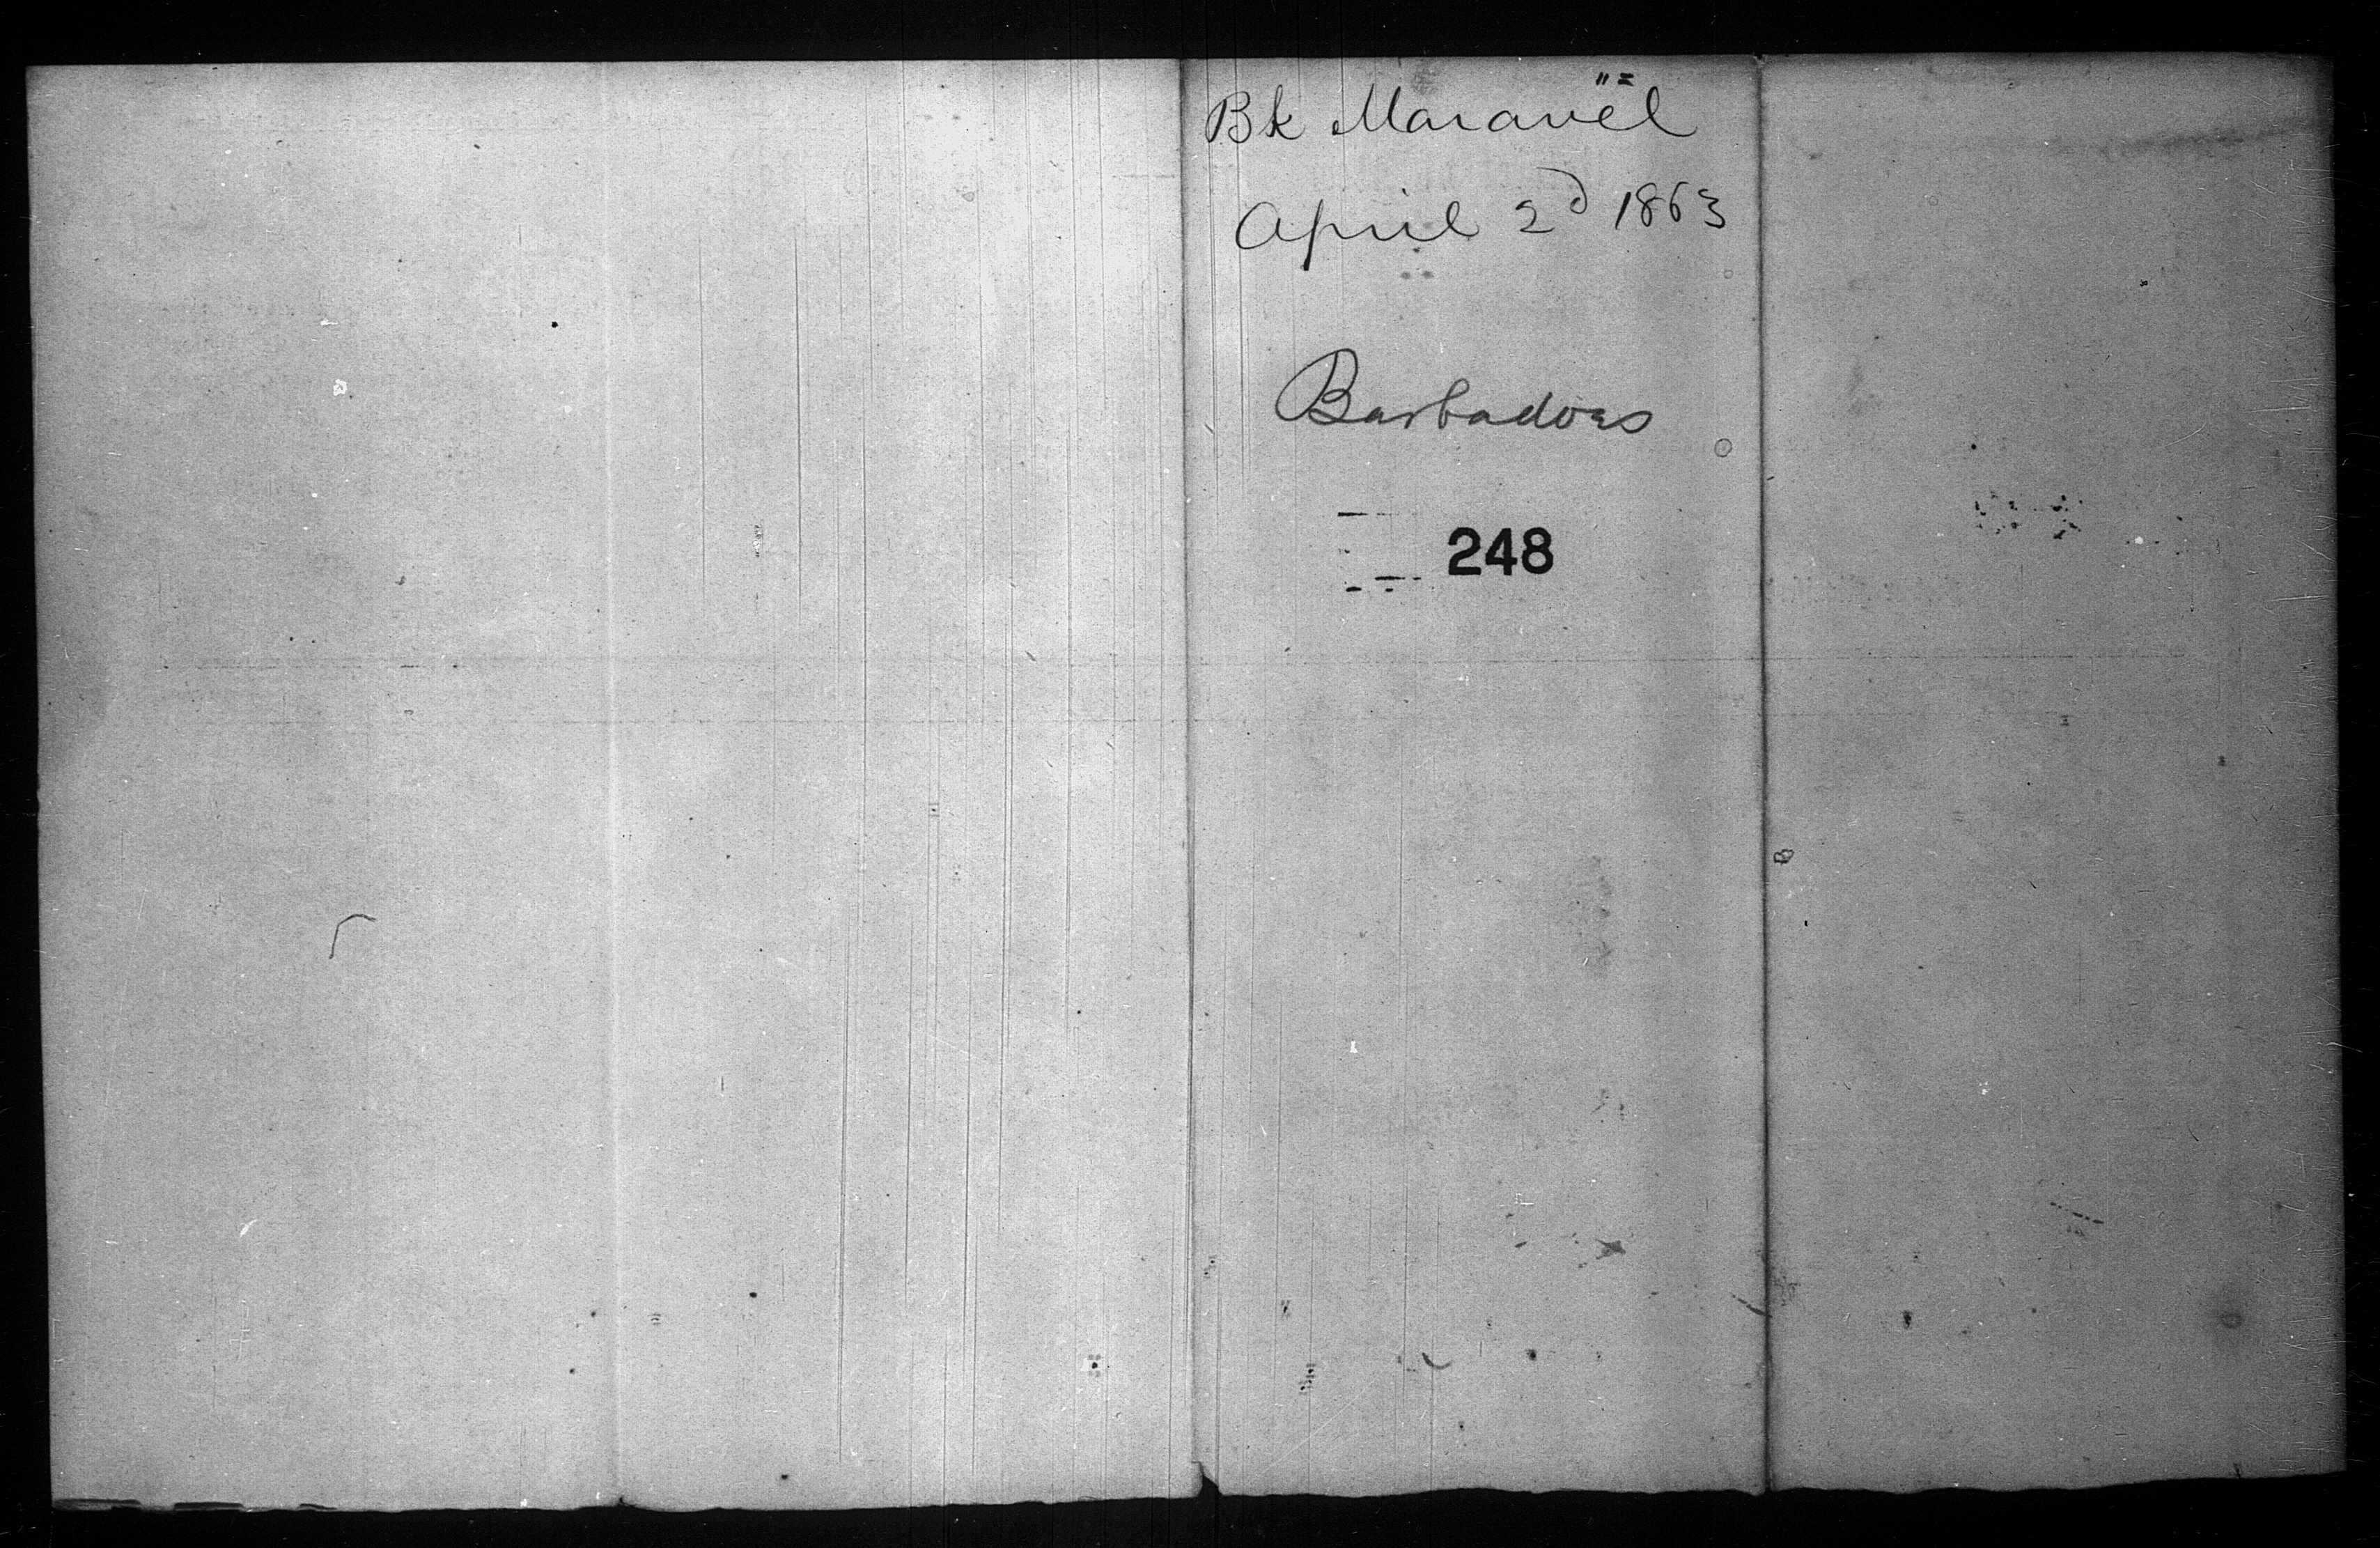 Bk Maravël
April 2d 1863
Barbadoes
248